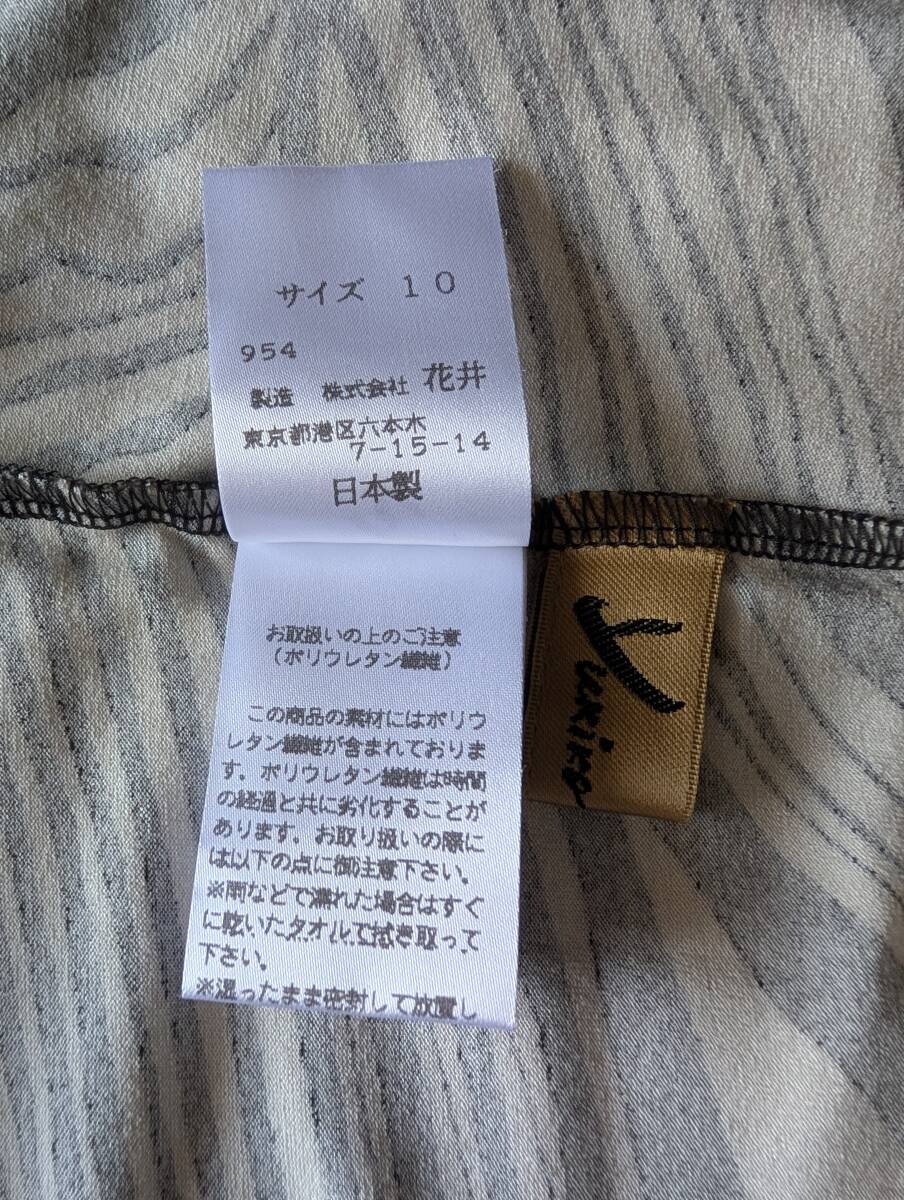 サイズ 10
954
製造 株式会社 花井
東京都港区六本木
7-15-14
日本製
お取扱いの上のご注意
(ポリウレタン繊維)
この商品の素材にはポリウ
レタン繊維が含まれておりま
す。ポリウレタン繊維は時間
の経過と共に劣化することが
あります。お取り扱いの際に
は以下の点に御注意下さい。
※雨などで濡れた場合はすぐ
に乾いたタオルで拭き取って
下さい。
※湿ったまま密封して放置し
Yukiko